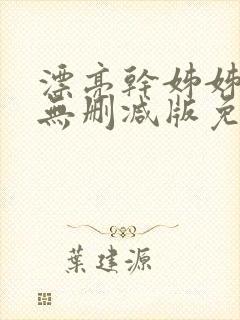 漂亮幹姊姊
無刪減版免
葉建源